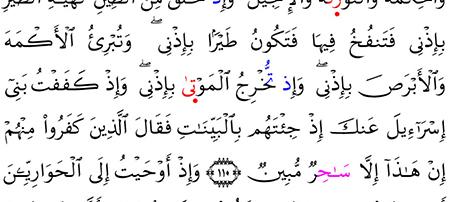 وَالْحِكْمَةَ وَالتَّوْرَىٰةَ وَالْإِنجِيلَ ۖ وَإِذْ تَخْلُقُ مِنَ الطِّينِ كَهَيْـَٔةِ الطَّيْرِ
بِإِذْنِى فَتَنفُخُ فِيهَا فَتَكُونُ طَيْرًۢا بِإِذْنِى ۖ وَتُبْرِئُ الْأَكْمَهَ
وَالْأَبْرَصَ بِإِذْنِى ۖ وَإِذْ تُّخْرِجُ الْمَوْتِىٰ بِإِذْنِى ۖ وَإِذْ كَفَفْتُ بَنِىٓ
إِسْرَٰٓءِيلَ عَنكَ إِذْ جِئْتَهُم بِالْبَيِّنَٰتِ فَقَالَ الَّذِينَ كَفَرُوا۟ مِنْهُمْ
إِنْ هَٰذَآ إِلَّا سَٰحِرٌ مُّبِينٌ ١١٠ وَإِذْ أَوْحَيْتُ إِلَى الْحَوَارِيِّـۧنَ